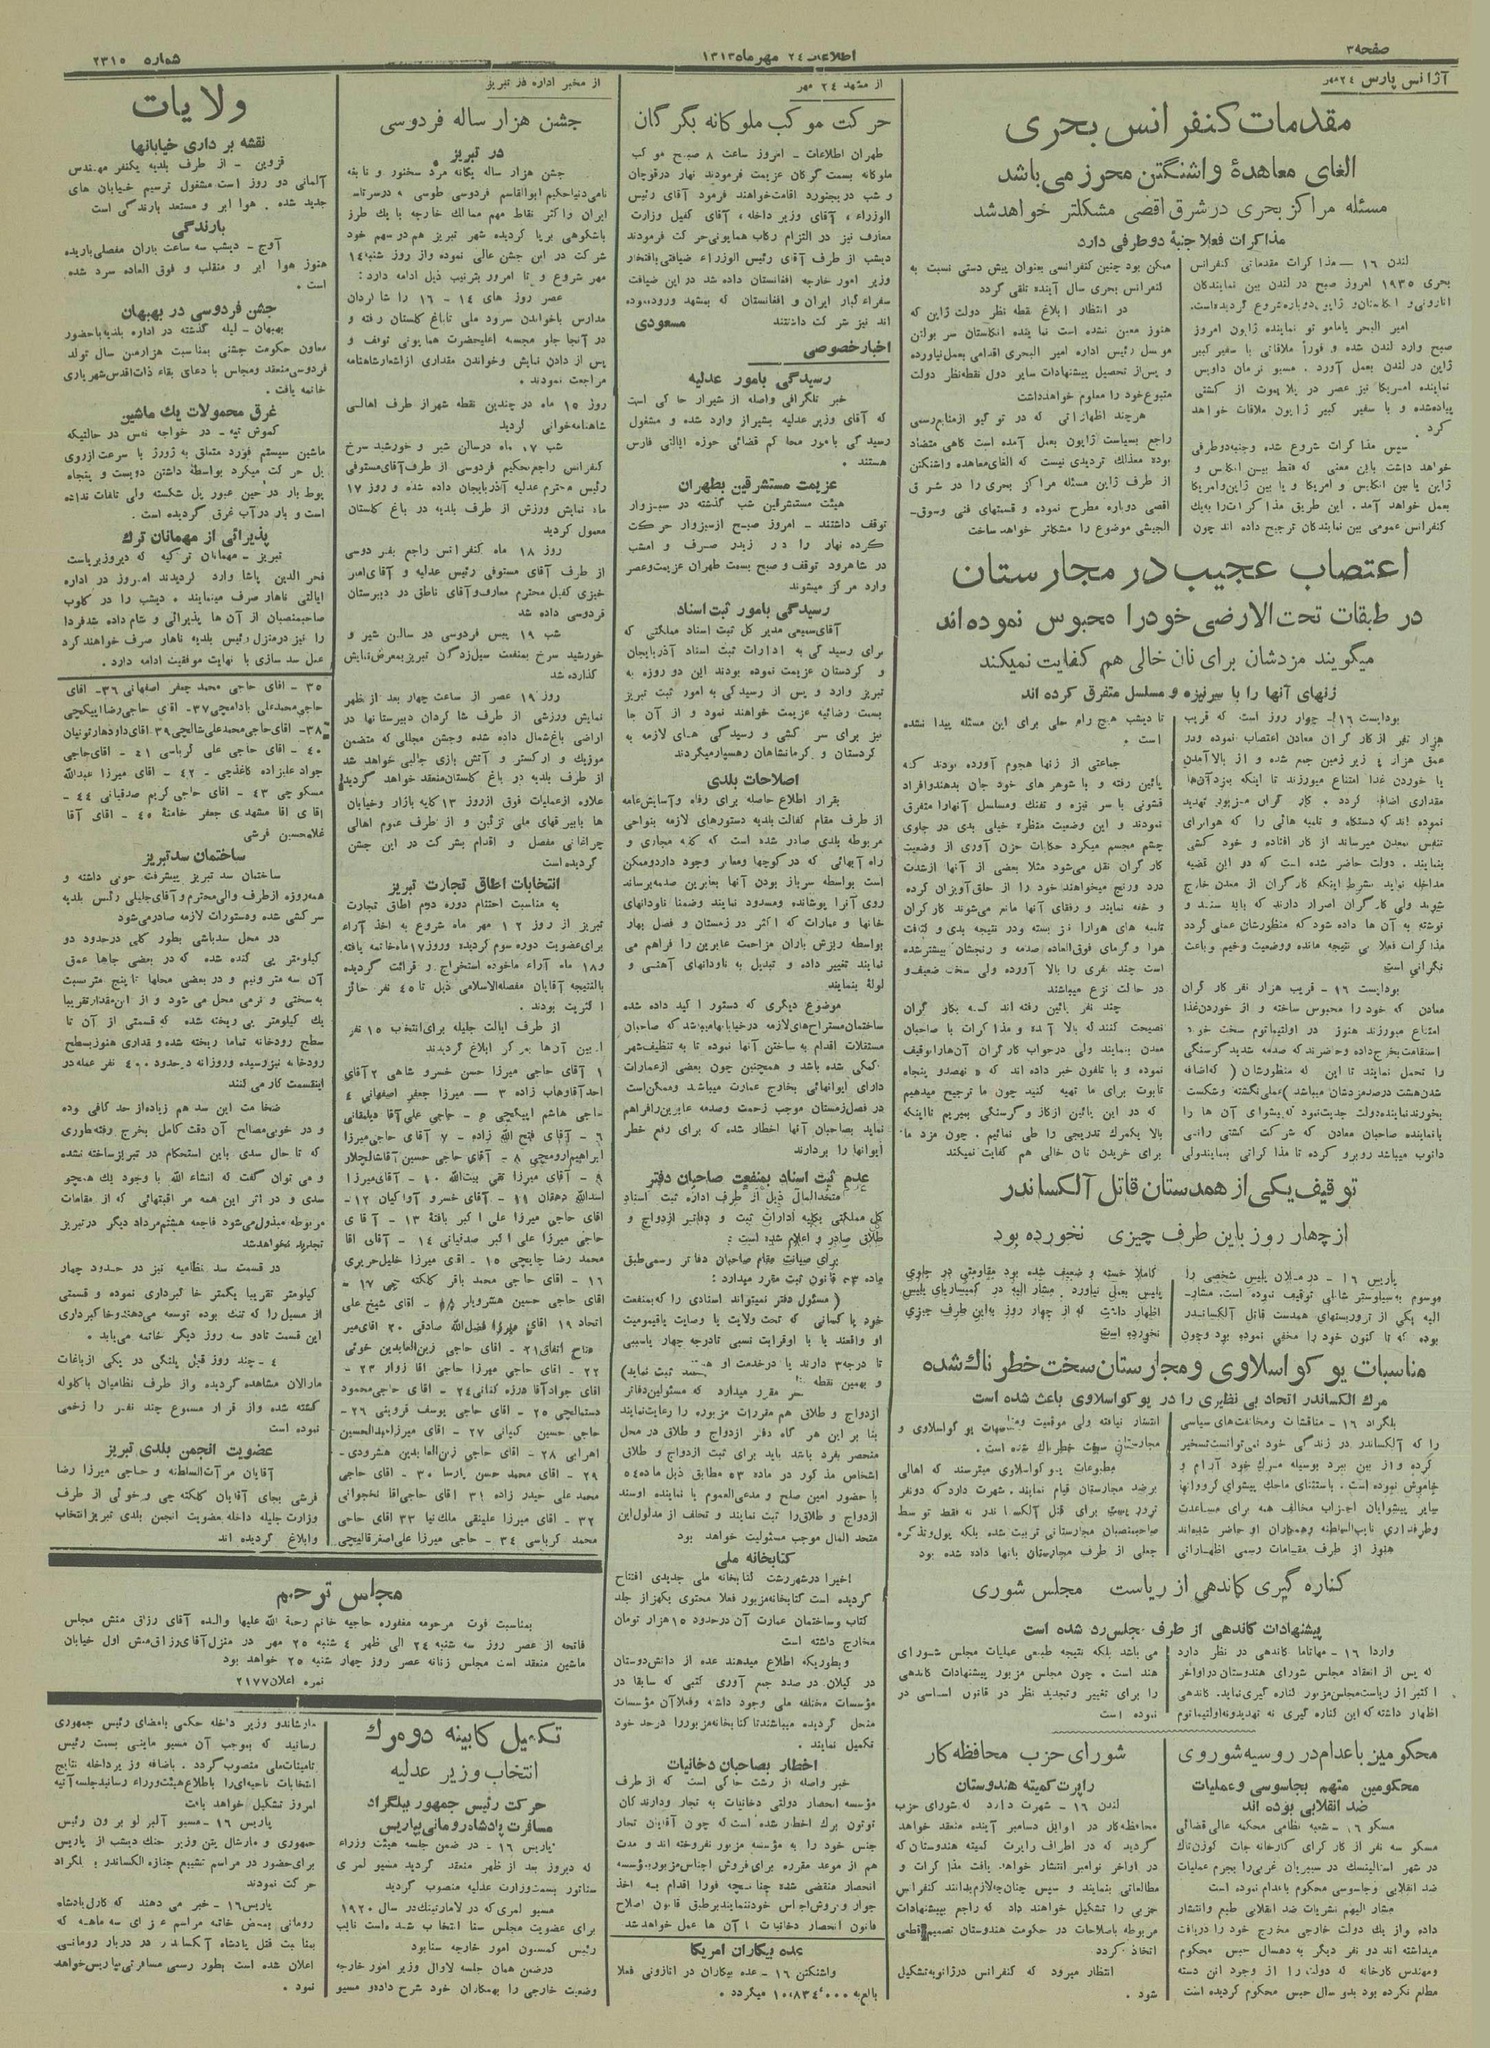 صفحه ۳
اطلاعات ۲۴ مهر ماه ۱۳۱۳
شماره ۲۳۱۵
آژانس پارس ۲۴ مهر
مقدمات کنفرانس بحری
الغای معاهدهٔ واشنگتن محرز می‌باشد
مسئله مراکز بحری در شرق اقصی مشکلتر خواهد شد
مذاکرات فعلا جنبهٔ دوطرفی دارد
لندن ۱۶ – مذاکرات مقدماتی کنفرانس
بحری ۱۹۳۵ امروز صبح در لندن بین نمایندگان
امیر البحر یامامو تو نماینده ژاپون امروز
صبح وارد لندن شده و فوراً ملاقاتی با سفیر کبیر
ژاپن در لندن بعمل آورد . مسیو نرمان داویس
نماینده امریکا نیز عصر در پلا یموت از کشتی
پیاده شده و با سفیر کبیر ژاپون ملاقات خواهد
کرد .
سپس مذاکرات شروع شده و جنبه دوطرفی
خواهد داشت باین معنی که فقط بین انگلیس و
ژاپن یا بین انگلیس و امریکا و یا بین ژاپن و امریکا
بعمل خواهد آمد . این طریق مذاکرات را به یک
کنفرانس عمومی بین نمایندگان ترجیح داده اند چون
ممکن بود چنین کنفرانسی بعنوان پیش دستی نسبت به
کنفرانس بحری سال آینده تلقی گردد
در انتظار ابلاغ نقطه نظر دولت ژاپن که
هنوز معین نشده است نماینده انگلستان سر بولتن
موسل رئیس اداره امیر البحری اقدامی بعمل نیاورده
و پس از تحصیل پیشنهادات سایر دول نقطه نظر دولت
متبوع خود را معلوم خواهد داشت
هرچند اظهاراتی که در توکیو از منابع رسمی
راجع بسیاست ژاپون بعمل آمده است گاهی متضاد
بوده معذلک تردیدی نیست که الغای معاهده واشنگتن
از طرف ژاپن مسئله مراکز بحری را در شرق
اقصی دوباره مطرح نموده و قسمتهای فنی و سوق-
الجیشی موضوع را مشکلتر خواهد ساخت
اعتصاب عجیب در مجارستان
در طبقات تحت الارضی خود را محبوس نموده اند
میگویند مزدشان برای نان خالی هم کفایت نمیکند
زنهای آنها را با سر نیزه و مسلسل متفرق کرده اند
بوداپست ۱۶ – چهار روز است که قریب
هزار نفر از کارگران معادن اعتصاب نموده و در
عمق هزار پا زیر زمین جمع شده و از بالا آمدن
یا خوردن غذا امتناع میورزند تا اینکه بمزد آن‌ها
مقداری اضافه گردد . کارگران مزبور تهدید
نموده اند که دستگاه و تلمبه هائی را که هوا برای
تنفس بمعدن میرساند از کار افتاده و خود کشی
بنمایند . دولت حاضر شده است که در این قضیه
مداخله نماید بشرط اینکه کارگران از معدن خارج
شوند ولی کارگران اصرار دارند که باید سند و
نوشته به آن ها داده شود که منظورشان عملی گردد
مذاکرات فعلا بی نتیجه مانده و وضعیت وخیم و باعث
نگرانی است
بوداپست ۱۶ – قریب هزار نفر کارگران
معادن که خود را محبوس ساخته و از خوردن غذا
امتناع میورزند هنوز در اولتیماتوم سخت خود
استقامت بخرج داده و حاضرند که صدمه شدید گرسنگی
را تحمل نمایند تا این که منظورشان ( که اضافه
شدن هشت درصد مزدشان میباشد ) عملی نگشته و شکست
تا دیشب هیچ راه حلی برای این مسئله پیدا نشده
است .
جماعتی از زنها هجوم آورده بودند که
پائین رفته و با شوهر های خود جان بدهند و افراد
قشونی با سر نیزه و تفنگ و مسلسل آنها را متفرق
نمودند و این وضعیت منظره خیلی بدی در جلوی
چشم مجسم میکرد حکایات حزن آوری از وضعیت
کارگران نقل می‌شود مثلا بعضی از آنها از شدت
درد و رنج میخواهند خود را از حلق آویزان کرده
و خفه نمایند و رفقای آنها مانع می‌شوند کارگران
تلمبه های هوا را نیز بسته و در نتیجه بدی و کثافت
هوا و گرمای فوق العاده صدمه و رنجشان بیشتر شده
است چند نفری را بالا آورده ولی سخت ضعیف و
در حالت نزع میباشند
چند نفر پائین رفته اند که به کارگران
نصیحت کنند که بالا آمده و مذاکرات با صاحبان
معدن بنمایند ولی در جواب کارگران آن‌ها را توقیف
نموده و با تلفون خبر داده اند که « نهصد و پنجاه
تابوت برای ما تهیه کنید چون ما ترجیح میدهیم
که در این پائین از کار و گرسنگی بمیریم تا اینکه
بالا یک مرگ تدریجی را طی نمائیم . چون مزد ما
برای خریدن نان خالی هم کفایت نمیکند
توقیف یکی از همدستان قاتل آلکساندر
از چهار روز باین طرف چیزی نخورده بود
پاریس ۱۶ – در ملان پلیس شخصی را
الیه یکی از تروریستهای همدست قاتل آلکساندر
بوده که تا کنون خود را مخفی نموده بود و چون
کاملا خسته و ضعیف شده بود مقاومتی در جلوی
پلیس بعمل نیاورد . مشار الیه در کمیساریای پلیس
اظهار داشت که از چهار روز به این طرف چیزی
نخورده است
مناسبات یوگواسلاوی و مجارستان سخت خطرناک شده
مرگ الکساندر اتحاد بی نظیری را در یوگواسلاوی باعث شده است
بلگراد ۱۶ – مناقشات و مخالفت‌های سیاسی
را که آلکساندر در زندگی خود نمی‌توانست تسخیر
کرده و از بین ببرد بوسیله مرگ خود آرام و
خاموش نموده است . باستثنای ماچک پیشوای کرواتها
سایر پیشوایان احزاب مخالف همه برای مساعدت
و طرفداری نایب السلطنه و همکاران او حاضر شده‌اند
هنوز از طرف مقامات رسمی اظهاراتی
مطبوعات یوگواسلاوی میترسند که اهالی
برضد مجارستان قیام نمایند . شهرت دارد که دو نفر
تروریست برای قتل آلکساندر نه فقط توسط
صاحبمنصبان مجارستانی تربیت شده بلکه پول و تذکره
جعلی از طرف مجارستان بآنها داده شده بود
کناره گیری گاندهی از ریاست مجلس شوری
پیشنهادات گاندهی از طرف مجلس رد شده است
واردا ۱۶ – مهاتما گاندهی در نظر دارد
که پس از انعقاد مجلس شورای هندوستان در اواخر
اکتبر از ریاست مجلس مزبور کناره گیری نماید . گاندهی
اظهار داشته که این کناره گیری نه تهدید و نه اولتیماتوم
می باشد بلکه نتیجه طبیعی عملیات مجلس شورای
هند است . چون مجلس مزبور پیشنهادات گاندهی
را برای تغییر و تجدید نظر در قانون اساسی رد
نموده است
محکومین باعدام در روسیه شوروی
محکومین متهم بجاسوسی و عملیات
ضد انقلابی بوده اند
مسکو ۱۶ – شعبه نظامی محکمه عالی قضائی
مسکو سه نفر از کارگرای کارخانه جات کوزنتسک
در شهر استالینسک در سیبریای غربی را بجرم عملیات
ضد انقلابی و جاسوسی محکوم باعدام نموده است
مشار الیهم نشریات ضد انقلابی طبع و انتشار
داده و از یک دولت خارجی مخارج خود را دریافت
میداشته اند دو نفر دیگر به ده سال حبس محکوم
و مهندس کارخانه که دولت را از وجود این دسته
مطلع نکرده بود بدو سال حبس محکوم گردیده است
شورای حزب محافظه کار
راپرت کمیته هندوستان
لندن ۱۶ – شهرت دارد که شورای حزب
محافظه کار در اوایل دسامبر آینده منعقد خواهد
گردید که در اطراف راپرت کمیته هندوستان که
در اواخر نوامبر انتشار خواهد یافت مذاکرات و
مطالعاتی بنمایند و سپس چنانچه لازم بدانند کنفرانس
حزبی را تشکیل خواهند داد که راجع بپیشنهادات
مربوطه باصلاحات در حکومت هندوستان تصمیم قطعی
اتخاذ گردد
انتظار میرود که کنفرانس در ژانویه تشکیل
شود .
از مشهد ۲۴ مهر
حرکت موکب ملوکانه بگرگان
طهران اطلاعات – امروز ساعت ۸ صبح موکب
ملوکانه بسمت گرگان عزیمت فرمودند نهار در قوچان
و شب در بجنورد اقامت خواهند فرمود آقای رئیس
الوزراء ، آقای وزیر داخله ، آقای کفیل وزارت
معارف نیز در التزام رکاب همایونی حرکت فرمودند
دیشب از طرف آقای رئیس الوزراء ضیافتی بافتخار
وزیر امور خارجه افغانستان داده شد در این ضیافت
سفراء کبار ایران و افغانستان که بمشهد ورود نموده
اند نیز شرکت داشتند
مسعودی
اخبار خصوصی
رسیدگی بامور عدلیه
خبر تلگرافی واصله از شیراز حاکی است
که آقای وزیر عدلیه بشیراز وارد شده و مشغول
رسیدگی بامور محاکم قضائی حوزه ایالتی فارس
هستند .
عزیمت مستشرقین بطهران
هیئت مستشرقین شب گذشته در سبزوار
توقف داشتند – امروز صبح از سبزوار حرکت
کرده نهار را در زیدر صرف و امشب
در شاهرود توقف و صبح بسمت طهران عزیمت و عصر
وارد مرکز میشوند
رسیدگی بامور ثبت اسناد
آقای سمیعی مدیر کل ثبت اسناد مملکتی که
برای رسیدگی به ادارات ثبت اسناد آذربایجان
و کردستان عزیمت نموده بودند این دو روزه به
تبریز وارد و پس از رسیدگی به امور ثبت تبریز
بسمت رضائیه عزیمت خواهند نمود و از آن جا
نیز برای سرکشی و رسیدگی های لازمه به
کردستان و کرمانشاهان رهسپار میگردند
اصلاحات بلدی
بقرار اطلاع حاصله برای رفاه و آسایش عامه
از طرف مقام کفالت بلدیه دستورهای لازمه بنواحی
مربوطه بلدی صادر شده است که کلیه مجاری و
راه آبهائی که در کوچها و معابر وجود دارد و ممکن
است بواسطه سرباز بودن آنها بعابرین صدمه برساند
روی آنرا پوشانده و مسدود نمایند و ضمنا ناودانهای
خانها و عمارات که اکثر در زمستان و فصل بهار
بواسطه ریزش باران مزاحمت عابرین را فراهم می
نمایند تغییر داده و تبدیل به ناودانهای آهنی و
لولهٔ بنمایند
موضوع دیگری که دستور اکید داده شده
ساختمان مستراح‌های لازمه در خیابانها میباشد که صاحبان
مستغلات اقدام به ساختن آنها نموده تا به تنظیف شهر
کمکی شده باشد و همچنین چون بعضی از عمارات
دارای ایوانهائی بخارج عمارت میباشد و ممکن است
در فصل زمستان موجب زحمت و صدمه عابرین را فراهم
نماید بصاحبان آنها اخطار شده که برای رفع خطر
ایوانها را بردارند
عدم ثبت اسناد بمنفعت صاحبان دفتر
متحد المالی ذیل از طرف اداره ثبت اسناد
کل مملکتی بکلیه ادارات ثبت و دفاتر ازدواج و
طلاق صادر و اعلام شده است :
برای صیانت مقام صاحبان دفاتر رسمی طبق
ماده ۵۳ قانون ثبت مقرر میدارد :
( مسئول دفتر نمیتواند اسنادی را که بمنفعت
خود یا کسانی که تحت ولایت یا وصایت یا قیمومیت
او واقعند یا با او قرابت نسبی تا درجه چهار یا سببی
ازدواج و طلاق هم مقررات مزبوره را رعایت نمایند
بنا بر این هر گاه دفتر ازدواج و طلاق در محل
منحصر بفرد باشد باید برای ثبت ازدواج و طلاق
اشخاص مذکور در ماده ۵۳ مطابق ذیل ماده ۵۴
با حضور امین صلح و مدعی العموم یا نماینده او سند
ازدواج و طلاق را ثبت نمایند و تخلف از مدلول این
متحد المال موجب مسئولیت خواهد بود
کتابخانه ملی
اخیرا در شهر رشت کتابخانه ملی جدیدی افتتاح
گردیده است کتابخانه مزبور فعلا محتوی یکهزار جلد
کتاب و ساختمان عمارت آن در حدود ۱۵ هزار تومان
مخارج داشته است
و بطوریکه اطلاع میدهند عده از دانش دوستان
در گیلان در صدد جمع آوری کتبی که سابقا در
مؤسسات مختلفه ملی وجود داشته و فعلا آن مؤسسات
منحل گردیده میباشند تا کتابخانه مزبور را در حد خود
تکمیل نمایند .
اخطار بصاحبان دخانیات
خبر واصله از رشت حاکی است که از طرف
مؤسسه انحصار دولتی دخانیات به تجار و دارندگان
توتون برگ اخطار شده است که چون آقایان تجار
جنس خود را به مؤسسه مزبور نفروخته اند و مدت
هم از موعد مقرره برای فروش اجناس مزبور بمؤسسه
انحصار منقضی شده چنانچه فورا اقدام به اخذ
جواز و فروش اجناس خود ننمایند بر طبق قانون اصلاح
قانون انحصار دخانیات با آن ها عمل خواهد شد
عده بیکاران امریکا
واشنگتن ۱۶ – عده بیکاران در اتازونی فعلا
بالغ به ۱۰،۸۳۴،۰۰۰ میگردد .
از مخبر اداره در تبریز
جشن هزار ساله فردوسی
در تبریز
جشن هزار ساله یگانه مرد سخنور و نابغه
نامی دنیا حکیم ابوالقاسم فردوسی طوسی که در سرتاسر
ایران و اکثر نقاط مهم ممالک خارجه با یک طرز
باشکوهی برپا گردیده شهر تبریز هم در سهم خود
شرکت در این جشن عالی نموده و از روز شنبه ۱۴
مهر شروع و تا امروز بترتیب ذیل ادامه دارد :
عصر روز های ۱۴ – ۱۶ را شاگردان
مدارس باخواندن سرود ملی تا باغ گلستان رفته و
در آنجا جلو مجسمه اعلیحضرت همایونی توقف و
پس از دادن نمایش و خواندن مقداری از اشعار شاهنامه
مراجعت نمودند .
روز ۱۵ ماه در چندین نقطه شهر از طرف اهالی
شاهنامه خوانی گردید
شب ۱۷ ماه در سالن شیر و خورشید سرخ
کنفرانس راجع بحکیم فردوسی از طرف آقای مستوفی
رئیس محترم عدلیه آذربایجان داده شده و روز ۱۷
ماه نمایش ورزش از طرف بلدیه در باغ گلستان
معمول گردید
روز ۱۸ ماه کنفرانس راجع بفردوسی
از طرف آقای مستوفی رئیس عدلیه و آقای امیر
خیزی کفیل محترم معارف و آقای ناطق در دبیرستان
فردوسی داده شد
شب ۱۹ پیس فردوسی در سالن شیر و
خورشید سرخ بمنفعت سیل زدگان تبریز بمعرض نمایش
گذارده شد
روز ۱۹ عصر از ساعت چهار بعد از ظهر
نمایش ورزشی از طرف شاگردان دبیرستانها در
اراضی باغ شمال داده شده و جشن مجللی که متضمن
موزیک و ارکستر و آتش بازی جالبی خواهد شد
از طرف بلدیه در باغ گلستان منعقد خواهد گردید
علاوه از عملیات فوق از روز ۱۳ کلیه بازار و خیابان
ها با بیرقهای ملی تزئین و از طرف عموم اهالی
چراغانی مفصل و اقدام بشرکت در این جشن
گردیده است
انتخابات اطاق تجارت تبریز
به مناسبت اختتام دوره دوم اطاق تجارت
تبریز از روز ۱۲ مهر ماه شروع به اخذ آراء
برای عضویت دوره سوم گردیده و روز ۱۷ ماه خاتمه یافته
و ۱۸ ماه آراء ماخوذه استخراج و قرائت گردیده
بالنتیجه آقایان مفصله الاسامی ذیل تا ۴۵ نفر حائز
اکثریت بودند .
از طرف ایالت جلیله برای انتخاب ۱۵ نفر
از بین آن‌ها بمرکز ابلاغ گردیدند
۱ آقای حاجی میرزا حسن خسرو شاهی ۲ آقای
احد آقا وهاب زاده ۳ – میرزا جعفر اصفهانی ۴
حاجی هاشم ایپکچی ۵ – حاجی علی آقا دیلمقانی
۶ – آقای فتح الله زاده – ۷ آقای حاجی میرزا
۹ – آقای میرزا تقی بیت الله ۱۰ – آقای میرزا
اسدالله دهقان ۱۱ – آقای خسرو آوا گیان ۱۲ –
اقای حاجی میرزا علی اکبر بافتهٔ ۱۳ – آقای
حاجی میرزا علی اکبر صدقیانی ۱۴ – آقای اقا
محمد رضا چایچی ۱۵ – اقای میرزا خلیل حریری
۱۶ – اقای حاجی محمد باقر کلکته چی ۱۷ –
اقای حاجی حسین هشترودیار – ۱۸ اقای شیخ علی
اتحاد ۱۹ اقای میرزا فضل الله صادقی ۲۰ اقای میر
فتاح اتفاق ۲۱ – اقای حاجی زین العابدین خوئی
۲۲ – اقای حاجی میرزا حاجی اقا زوار ۲۳ –
دستمالچی ۲۵ – اقای حاجی یوسف قزوینی ۲۶ –
اهرابی ۲۸ – اقای حاجی زین العابدین هشترودی –
۲۹ – اقای محمد حسن پارسا ۳۰ – اقای حاجی
محمد علی حیدر زاده ۳۱ اقای حاجی اقا نخجوانی
۳۲ – اقای میرزا علینقی ملک نیا ۳۳ اقای حاجی
محمد کرباسی ۳۴ – حاجی میرزا علی اصغر قالیچی
ولایات
نقشه برداری خیابانها
قزوین – از طرف بلدیه یکنفر مهندس
آلمانی دو روز است مشغول ترسیم خیابان های
جدید شده . هوا ابر و مستعد بارندگی است
بارندگی
آوج – دیشب سه ساعت باران مفصلی باریده
هنوز هوا ابر و منقلب و فوق العاده سرد شده
است .
جشن فردوسی در بهبهان
بهبهان – لیله گذشته در اداره بلدیه با حضور
معاون حکومت جشنی بمناسبت هزارمین سال تولد
فردوسی منعقد و مجلس با دعای بقاء ذات اقدس شهریاری
خاتمه یافت .
غرق محمولات یک ماشین
گموش تپه – در خواجه نفس در حالتیکه
ماشین سیستم فورد متعلق به ژورژ با سرعت از روی
پل حرکت میکرد بواسطهٔ داشتن دویست و پنجاه
پوط بار در حین عبور پل شکسته ولی تلفات نداده
است و بار در آب غرق گردیده است .
پذیرائی از مهمانان ترک
تبریز – مهمانان ترکیه که دیروز بریاست
فخر الدین پاشا وارد گردیدند امروز در اداره
ایالتی ناهار صرف مینمایند . دیشب را در کلوب
صاحبمنصبان از آن ها پذیرائی و شام داده شد فردا
را نیز در منزل رئیس بلدیه ناهار صرف خواهند کرد
عمل سد سازی با نهایت موفقیت ادامه دارد .
۳۵ – اقای حاجی محمد جعفر اصفهانی ۳۶ – اقای
حاجی محمد علی بادامچی ۳۷ – اقای حاجی رضا ایپکچی
۳۸ – اقای حاجی محمد علی شالچی ۳۹ اقای داود هارتونیان
۴۰ – اقای حاجی علی کرباسی ۴۱ – اقای حاجی
جواد علیزاده کاغذچی – ۴۲ – اقای میرزا عبدالله
مسکوچی ۴۳ – اقای حاجی کریم صدقیانی ۴۴ –
اقای اقا مشهدی جعفر خامنهٔ ۴۵ – اقای آقا
غلامحسین فرشی
ساختمان سد تبریز
ساختمان سد تبریز پیشرفت خوبی داشته و
همه روزه از طرف والی محترم و آقای جلیلی رئیس بلدیه
سرکشی شده و دستورات لازمه صادر می‌شود
در محل سد باشی بطور کلی در حدود دو
کیلومتر پی کنده شده که در بعضی جاها عمق
آن سه متر و نیم و در بعضی محلها تا پنج متر نسبت
به سختی و نرمی محل می شود و از این مقدار تقریبا
یک کیلومتر پی ریخته شده که قسمتی از آن تا
سطح رودخانه تماما ریخته شده و مقداری هنوز بسطح
رودخانه نیز نرسیده و روزانه در حدود ۴۰۰ نفر عمله در
اینقسمت کار می کنند
ضخامت این سد هم زیاده از حد کافی بوده
و در خوبی مصالح آن دقت کامل بخرج رفته بطوری
که تا حال سدی باین استحکام در تبریز ساخته نشده
و می توان گفت که انشاء الله با وجود یک همچو
سدی و در اثر این همه مراقبتهائی که از مقامات
مربوطه مبذول می‌شود فاجعه هشتم مرداد دیگر در تبریز
تجدید نخواهد شد
در قسمت سد نظامیه نیز در حدود چهار
کیلومتر تقریبا یکمتر خاکبرداری نموده و قسمتی
از مسیل را که تنگ بوده توسعه می‌دهند و خاکبرداری
این قسمت تا دو سه روز دیگر خاتمه می‌یابد .
۴ – چند روز قبل پلنگی در یکی از باغات
مارالان مشاهده گردیده و از طرف نظامیان با گلوله
کشته شده و از قرار مسموع چند نفر را زخمی
نموده است
عضویت انجمن بلدی تبریز
آقایان مرآت السلطنه و حاجی میرزا رضا
فرشی بجای آقایان کلکته چی و خوئی از طرف
وزارت جلیله داخله بعضویت انجمن بلدی تبریز انتخاب
و ابلاغ گردیده اند
مجلس ترحیم
بمناسبت فوت مرحومه مغفوره حاجیه خانم رحمة الله علیها والده آقای رزاق منش مجلس
فاتحه از عصر روز سه شنبه ۲۴ الی ظهر ۴ شنبه ۲۵ مهر در منزل آقای رزاق منش اول خیابان
ماشین منعقد است مجلس زنانه عصر روز چهار شنبه ۲۵ خواهد بود
نمره اعلان ۲۱۷۷
تکمیل کابینه دومرگ
انتخاب وزیر عدلیه
حرکت رئیس جمهور ببلگراد
مسافرت پادشاه رومانی بپاریس
پاریس ۱۶ – در ضمن جلسه هیئت وزراء
که دیروز بعد از ظهر منعقد گردید مسیو لمری
سناتور بسمت وزارت عدلیه منصوب گردید
مسیو لمری که در لامارتینیک در سال ۱۹۲۰
برای عضویت مجلس سنا انتخاب شده است نایب
رئیس کمسیون امور خارجه سنا بود
در ضمن همان جلسه لاوال وزیر امور خارجه
وضعیت خارجی را بهمکاران خود شرح داد و مسیو
مارشاندو وزیر داخله حکمی بامضای رئیس جمهوری
رسانید که بموجب آن مسیو ماینی بسمت رئیس
تامینات ملی منصوب گردد . باضافه وزیر داخله نتایج
انتخابات ناحیه‌ای را باطلاع هیئت وزراء رسانید جلسه آتیه
امروز تشکیل خواهد یافت
پاریس ۱۶ – مسیو آلبر لوبرون رئیس
جمهوری و مارشال پتن وزیر جنگ دیشب از پاریس
برای حضور در مراسم تشییع جنازه الکساندر ببلگراد
حرکت نمودند
پاریس ۱۶ – خبر می دهند که کارل پادشاه
رومانی بمحض خاتمه مراسم عزای سه ماهه که
بمناسبت قتل پادشاه آلکساندر در دربار رومانی
اعلان شده است بطور رسمی مسافرتی بپاریس خواهد
نمود .